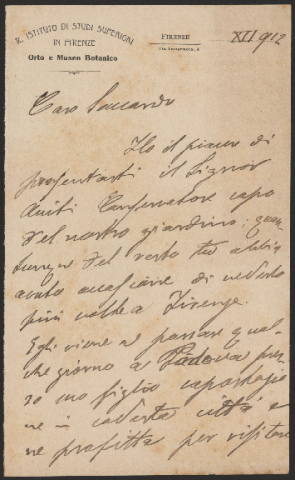 R. ISTITUTO DI STUDI SUPERIORI
IN FIRENZE
Orto e Museo Botanico
FIRENZE
XII 912
Caro Saccardo
Ho il piacer di
presentarti il Signor
Conservatore capo
del nostro giardino: quan
tunque del resto tu abbia
avuto occasione di vederlo
più volte a Firenze.
Egli viene a passare qual-
che giorno a Padova pres
so suo figlio capostazio
ne in codesta città e
ne profitta per visitare